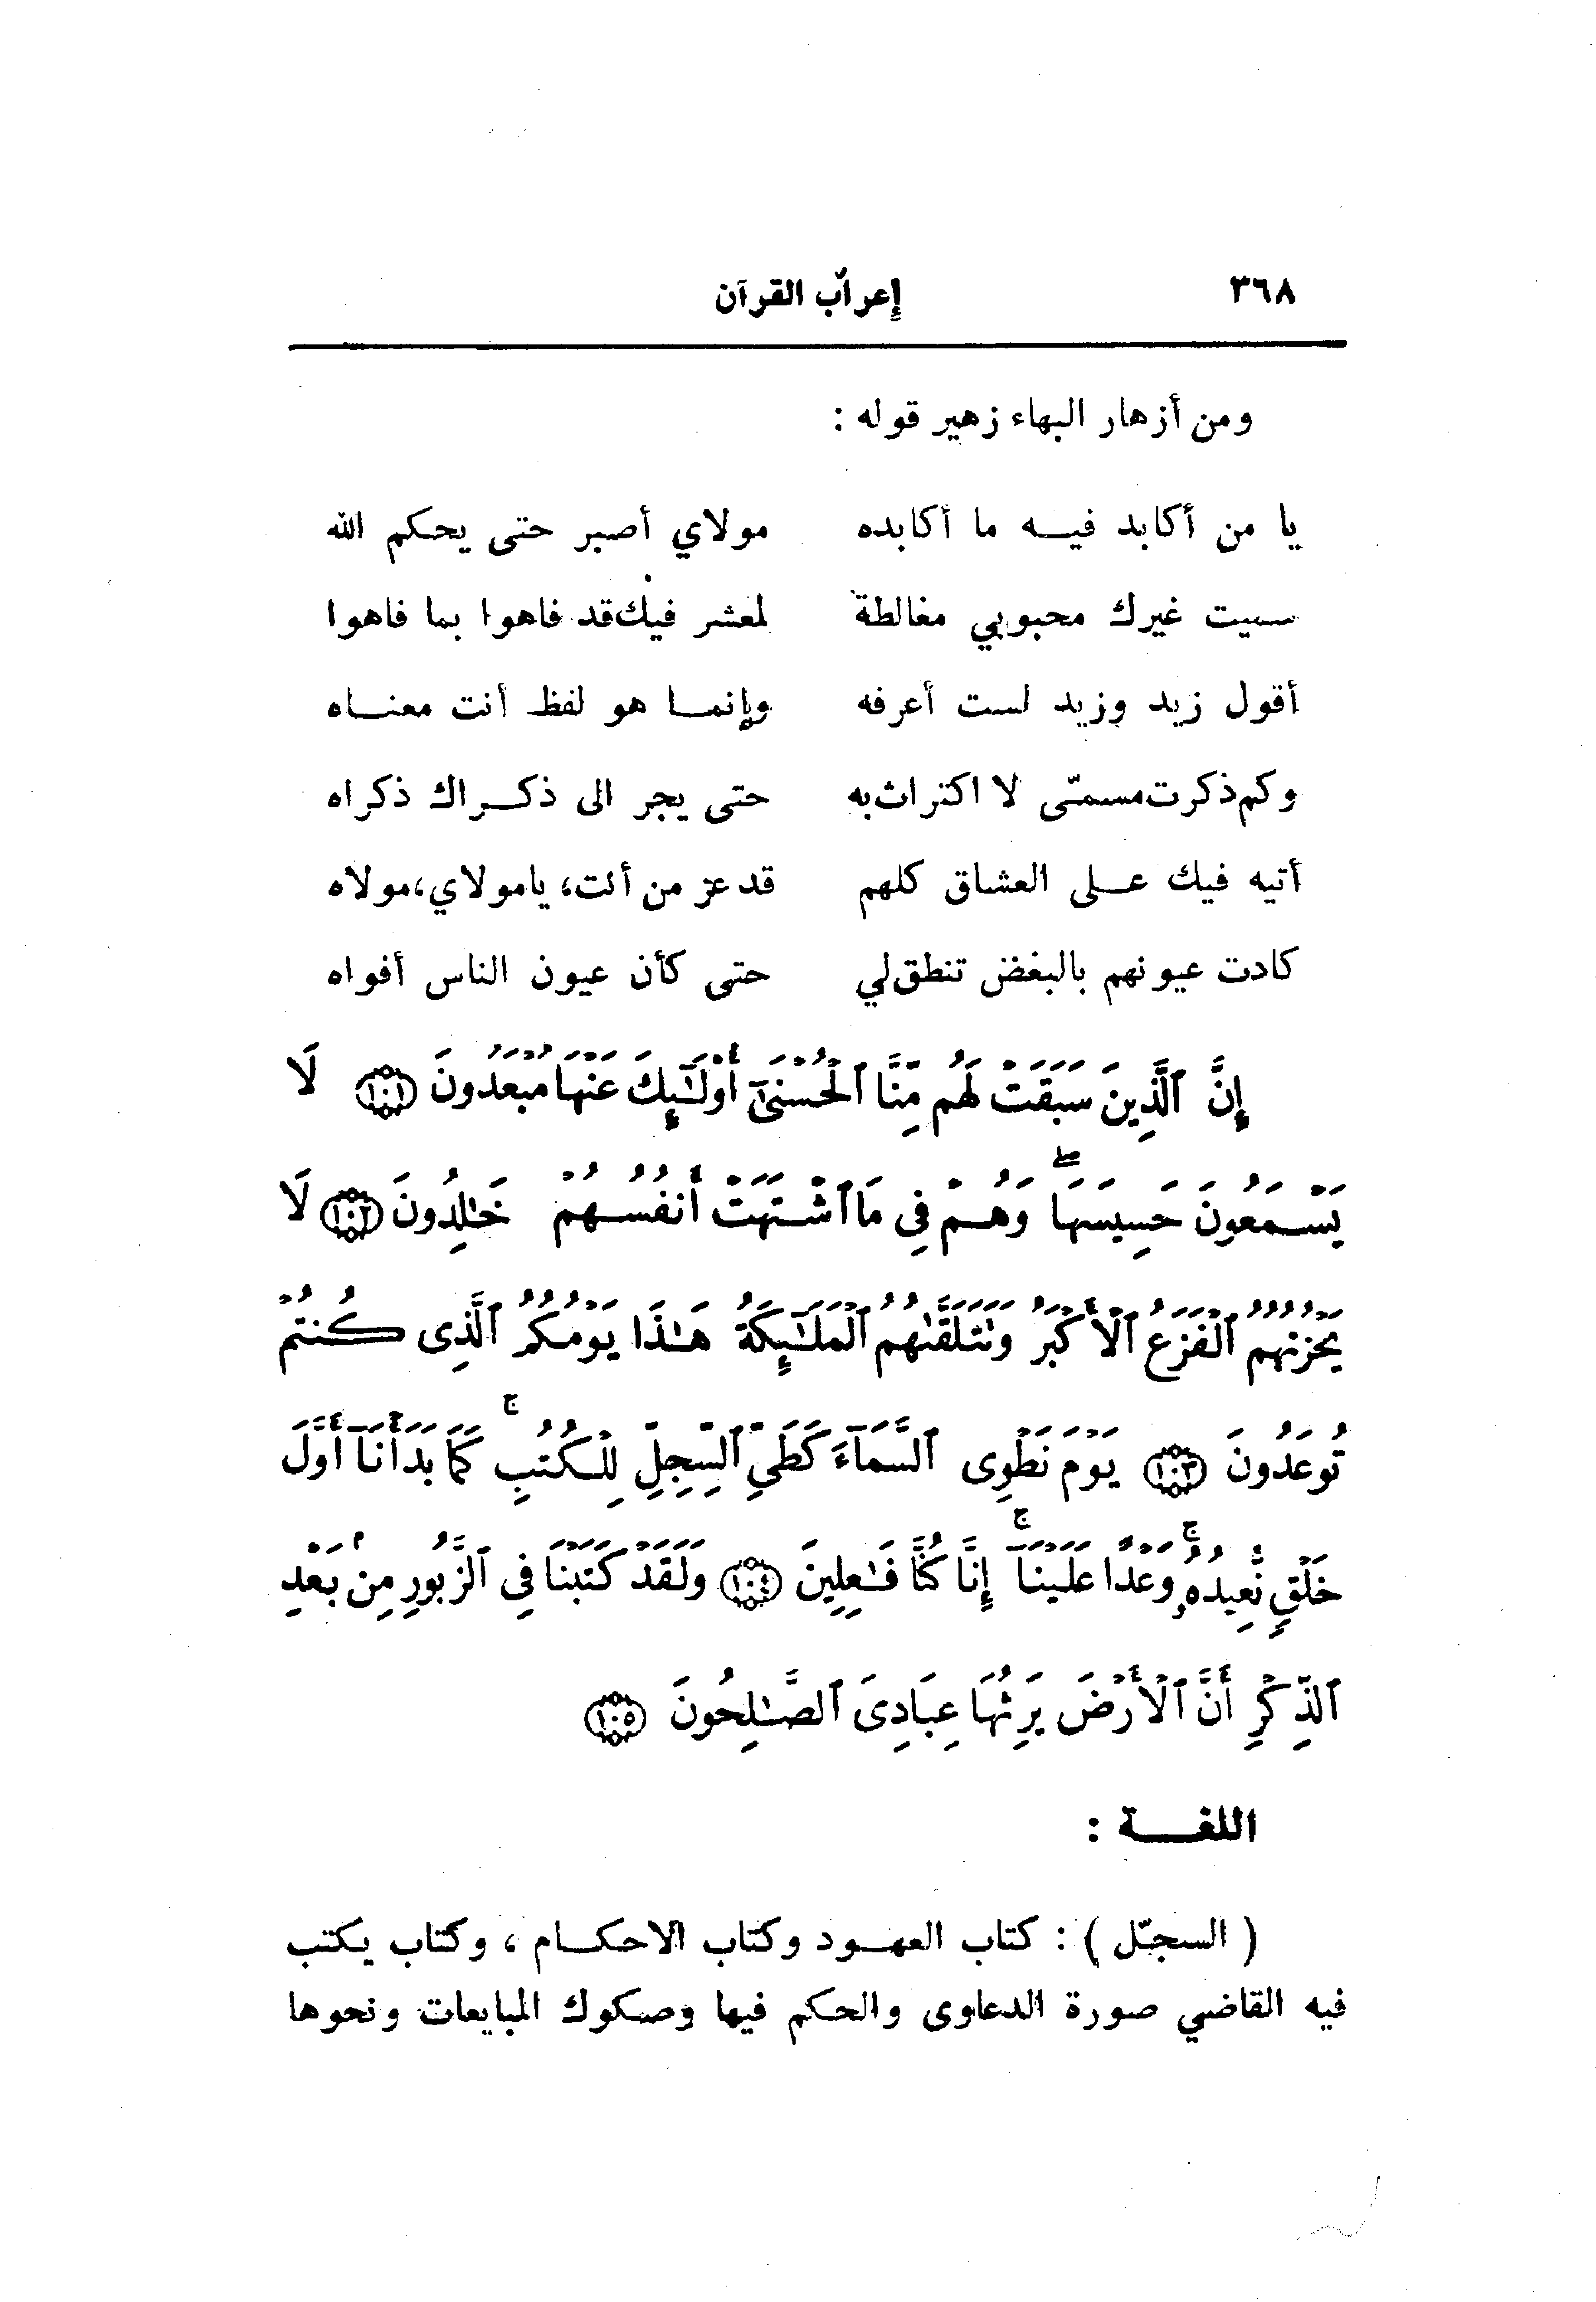 ٣٦٨ إعراب القرآن
ومن أزهار البهاء زهير قوله :
يا من أكابد فيه ما أكابده مولاي أصبر حتى يحكم الله
سميت غيرك محبوبي مغالطة لمعشر فيك قد فاهوا بما فاهوا
أقول زيد وزيد لست أعرفه وإنما هو لفظ أنت معناه
وكم ذكرت مسمّى لا اكتراث به حتى يجر الى ذكراك ذكراه
أتيه فيك على العشاق كلهم قد عز من أنت، يا مولاي، مولاه
كادت عيونهم بالبغض تنطق لي حتى كأن عيون الناس أفواه
إِنَّ ٱلَّذِينَ سَبَقَتْ لَهُم مِّنَّا ٱلْحُسْنَىٰٓ أُوْلَٰٓئِكَ عَنْهَا مُبْعَدُونَ ١٠١ لَا
يَسْمَعُونَ حَسِيسَهَا ۖ وَهُمْ فِي مَا ٱشْتَهَتْ أَنفُسُهُمْ خَٰلِدُونَ ١٠٢ لَا
يَحْزُنُهُمُ ٱلْفَزَعُ ٱلْأَكْبَرُ وَتَتَلَقَّىٰهُمُ ٱلْمَلَٰٓئِكَةُ هَٰذَا يَوْمُكُمُ ٱلَّذِى كُنتُمْ
تُوعَدُونَ ١٠٣ يَوْمَ نَطْوِى ٱلسَّمَآءَ كَطَىِّ ٱلسِّجِلِّ لِلْكُتُبِ ۚ كَمَا بَدَأْنَآ أَوَّلَ
خَلْقٍ نُّعِيدُهُۥ ۚ وَعْدًا عَلَيْنَآ ۚ إِنَّا كُنَّا فَٰعِلِينَ ١٠٤ وَلَقَدْ كَتَبْنَا فِي ٱلزَّبُورِ مِنۢ بَعْدِ
ٱلذِّكْرِ أَنَّ ٱلْأَرْضَ يَرِثُهَا عِبَادِىَ ٱلصَّٰلِحُونَ ١٠٥
اللغة :
( السجّل ) : كتاب العهود وكتاب الاحكام ، وكتاب يكتب
فيه القاضي صورة الدعاوى والحكم فيها وصكوك المبايعات ونحوها